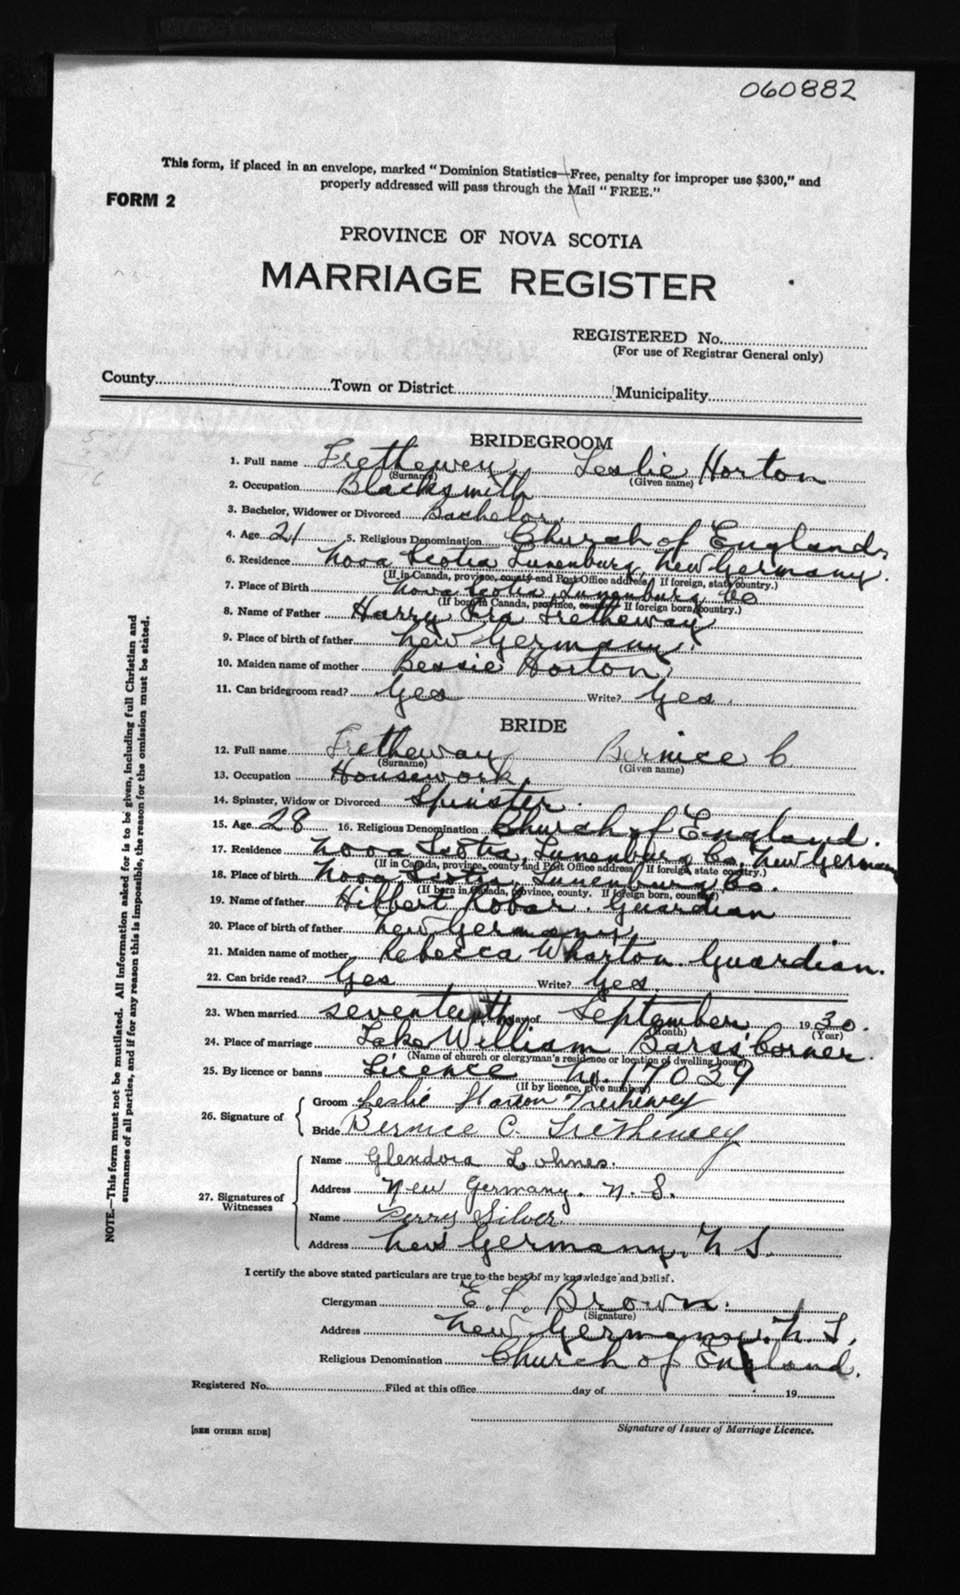 060882
This form, if placed in an envelope, marked "Dominion Statistics—Free, penalty for improper use $300," and
properly addressed will pass through the Mail "FREE."
FORM 2
PROVINCE OF NOVA SCOTIA
MARRIAGE REGISTER
REGISTERED No.
(For use of Registrar General only)
County Town or District Municipality
BRIDEGROOM
1. Full name Trethewey Leslie Horton
(Surname) (Given name)
2. Occupation Blacksmith
3. Bachelor, Widower or Divorced Bachelor.
4. Age 21 5. Religious Denomination Church of England.
6. Residence Nova Scotia Lunenburg, New Germany.
(If in Canada, province, county and Post Office address. If foreign, state country.)
7. Place of Birth Nova Scotia, Lunenburg Co
(If born in Canada, province, county. If foreign born, country.)
8. Name of Father Harry Ira Tretheway
9. Place of birth of father New Germany.
10. Maiden name of mother Bessie Horton.
11. Can bridegroom read? Yes Write? Yes.
BRIDE
12. Full name Tretheway Bernice C.
(Surname) (Given name)
13. Occupation Housework.
14. Spinster, Widow or Divorced Spinster.
15. Age 28 16. Religious Denomination Church of England.
17. Residence Nova Scotia, Lunenburg Co, New Germany
(If in Canada, province, county and Post Office address. If foreign, state country.)
18. Place of birth Nova Scotia, Lunenburg Co.
(If born in Canada, province, county. If foreign born, country)
19. Name of father Hibbert Robar. Guardian
20. Place of birth of father New Germany.
21. Maiden name of mother Rebecca Wharton Guardian.
22. Can bride read? Yes Write? Yes.
23. When married seventeenth day of September 1930.
(Month) (Year)
24. Place of marriage Lake William Barss' Corner.
(Name of church or clergyman's residence or location of dwelling house)
25. By licence or banns Licence No. 17029
(If by licence, give number)
26. Signature of Groom Leslie Horton Trethewey
Bride Bernice C. Trethewey
27. Signatures of Witnesses
Name Glendora Lohnes.
Address New Germany. N. S.
Name Perry Silver.
Address New Germany, N S.
I certify the above stated particulars are true to the best of my knowledge and belief.
Clergyman Brown.
(Signature)
Address New Germany. N. S.
Religious Denomination Church of England.
Registered No. Filed at this office day of 19
Signature of Issuer of Marriage Licence.
[SEE OTHER SIDE]
NOTE.—This form must not be mutilated. All information asked for is to be given, including full Christian and
surnames of all parties, and if for any reason this is impossible, the reason for the omission must be stated.